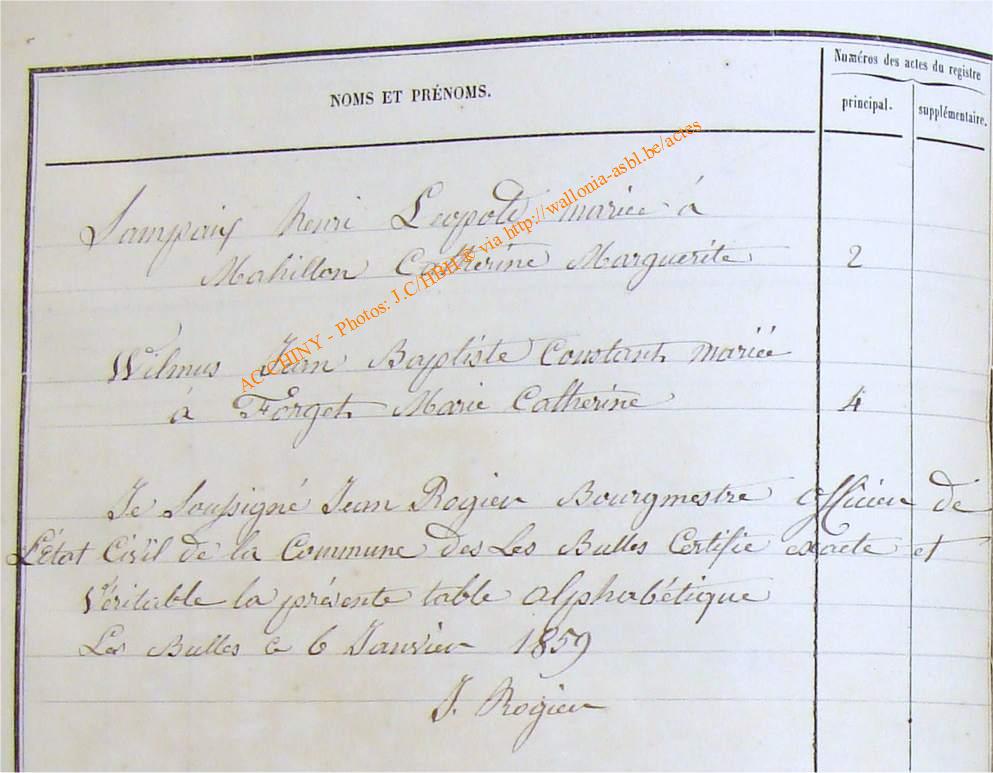 Numéros des actes du registre
NOMS ET PRÉNOMS.
principal.
supplémentaire.
Lampaix Henri Léopold mariée à
Mahillon Catherine Marguerite 2
Wilmus Jean Baptiste Constant mariée
à Forget Marie Catherine 4
Je Soussigné Jean Rogier Bourgmestre officier de
L'état Civil de la Commune des Les Bulles Certifie exacte et
Véritable la présente table alphabétique
Les Bulles ce 6 Janvier 1859
J. Rogier
AC CHINY - Photos: J.C/HBH® via http://wallonia-asbl.be/actes